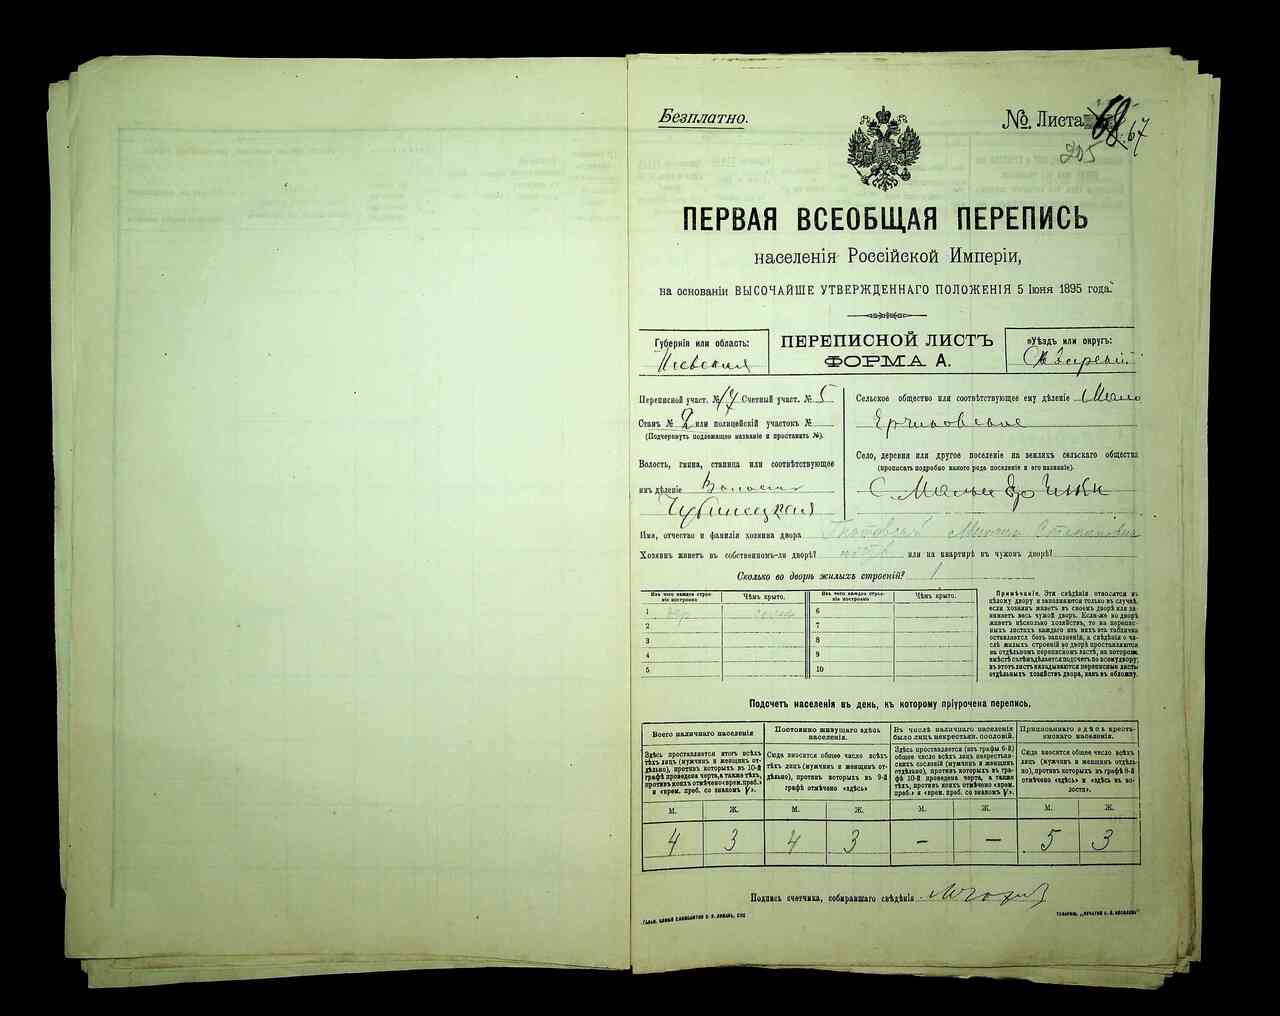 Безплатно.
№ Листа 68. 67
205
ПЕРВАЯ ВСЕОБЩАЯ ПЕРЕПИСЬ
населенія Россійской Имперіи,
на основаніи ВЫСОЧАЙШЕ УТВЕРЖДЕННАГО ПОЛОЖЕНІЯ 5 Іюня 1895 года.
Губернія или область:
Кіевская
ПЕРЕПИСНОЙ ЛИСТЪ
ФОРМА А.
Уѣздъ или округъ:
Переписной участ. № 17 Счетный участ. № 5
Станъ № 2 или полицейскій участокъ №
(Подчеркнуть подлежащее названіе и проставить №).
Волость, гмина, станица или соотвѣтствующее
имъ дѣленіе Волость
Чубинецкая
Сельское общество или соотвѣтствующее ему дѣленіе Мало
Ерчиковское
Село, деревня или другое поселеніе на земляхъ сельскаго общества
(прописать подробно какого рода поселеніе и его названіе).
С. Малые Ерчики
Имя, отчество и фамилія хозяина двора Михаилъ Степановичъ
Хозяинъ живетъ въ собственномъ-ли дворѣ? или на квартирѣ въ чужомъ дворѣ?
Сколько во дворѣ жилыхъ строеній? 1
Изъ чего каждое строеніе построено
Чѣмъ крыто.
Изъ чего каждое строеніе построено
Чѣмъ крыто.
1 6
2 7
3 8
4 9
5 10
Примѣчаніе. Эти свѣдѣнія относятся къ
цѣлому двору и заполняются только въ случаѣ,
если хозяинъ живетъ въ своемъ дворѣ или занимаетъ
весь чужой дворъ. Если-же во дворѣ
живетъ нѣсколько хозяйствъ, то на переписныхъ
листахъ каждаго изъ нихъ эта табличка
оставляется безъ заполненія, а свѣдѣнія о числѣ
жилыхъ строеній во дворѣ проставляются
на отдѣльномъ переписномъ листѣ, на которомъ
вмѣстѣ съ тѣмъ дѣлается подсчетъ по всему двору;
въ этотъ листъ вкладываются переписные листы
отдѣльныхъ хозяйствъ двора, какъ въ обложку.
Подсчетъ населенія въ день, къ которому пріурочена перепись.
Всего наличнаго населенія
Постоянно живущаго здѣсь населенія.
Въ числѣ наличнаго населенія было лицъ некрестьян. сословій.
Приписаннаго здѣсь крестьянскаго населенія.
Здѣсь проставляется итогъ всѣхъ тѣхъ лицъ (мужчинъ и женщинъ отдѣльно), противъ которыхъ въ 10-й графѣ проведена черта, а также тѣхъ, противъ коихъ отмѣчено «врем. преб.» и «врем. преб. со знакомъ V».
Сюда вносится общее число всѣхъ тѣхъ лицъ (мужчинъ и женщинъ отдѣльно), противъ которыхъ въ 9-й графѣ отмѣчено «здѣсь»
Здѣсь проставляется (изъ графы 6-й) общее число всѣхъ лицъ некрестьянскихъ сословій (мужчинъ и женщинъ отдѣльно), противъ которыхъ въ графѣ 10-й проведена черта, а также тѣхъ, противъ коихъ отмѣчено «врем. преб.» и «врем. преб. со знакомъ V».
Сюда вносится общее число всѣхъ лицъ (мужчинъ и женщинъ отдѣльно), противъ которыхъ въ графѣ 8-й отмѣчено «здѣсь» и «здѣсь въ волости».
М. Ж. М. Ж. М. Ж. М. Ж.
4 3 4 3 – – 5 3
Подпись счетчика, собиравшаго свѣдѣнія